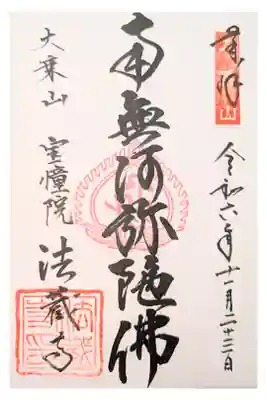 奉拝
令和六年十一月二十三日
南無阿弥陀佛
大乗山
宝幢院
法蔵寺